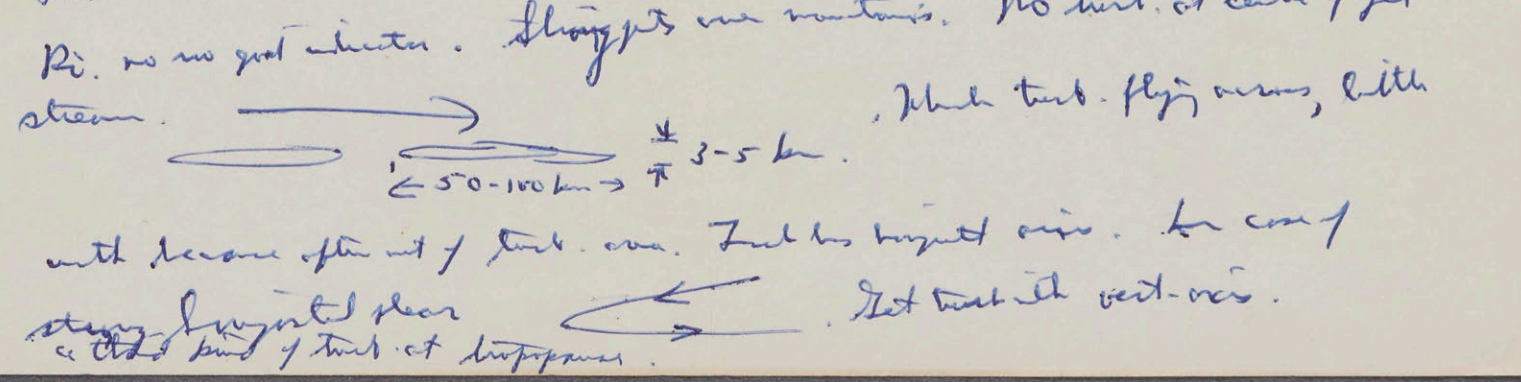 Ri. no no good indicator. Strong jets over mountains. No turb. at center of jet
stream.
. Much turb. flying across, little
3-5 km.
← 50-100 km →
with because often out of turb. area. Turb has horizontal axis. In case of
strong horizontal shear . Get turb with vert-axis.
a third kind of turb. at tropopause.